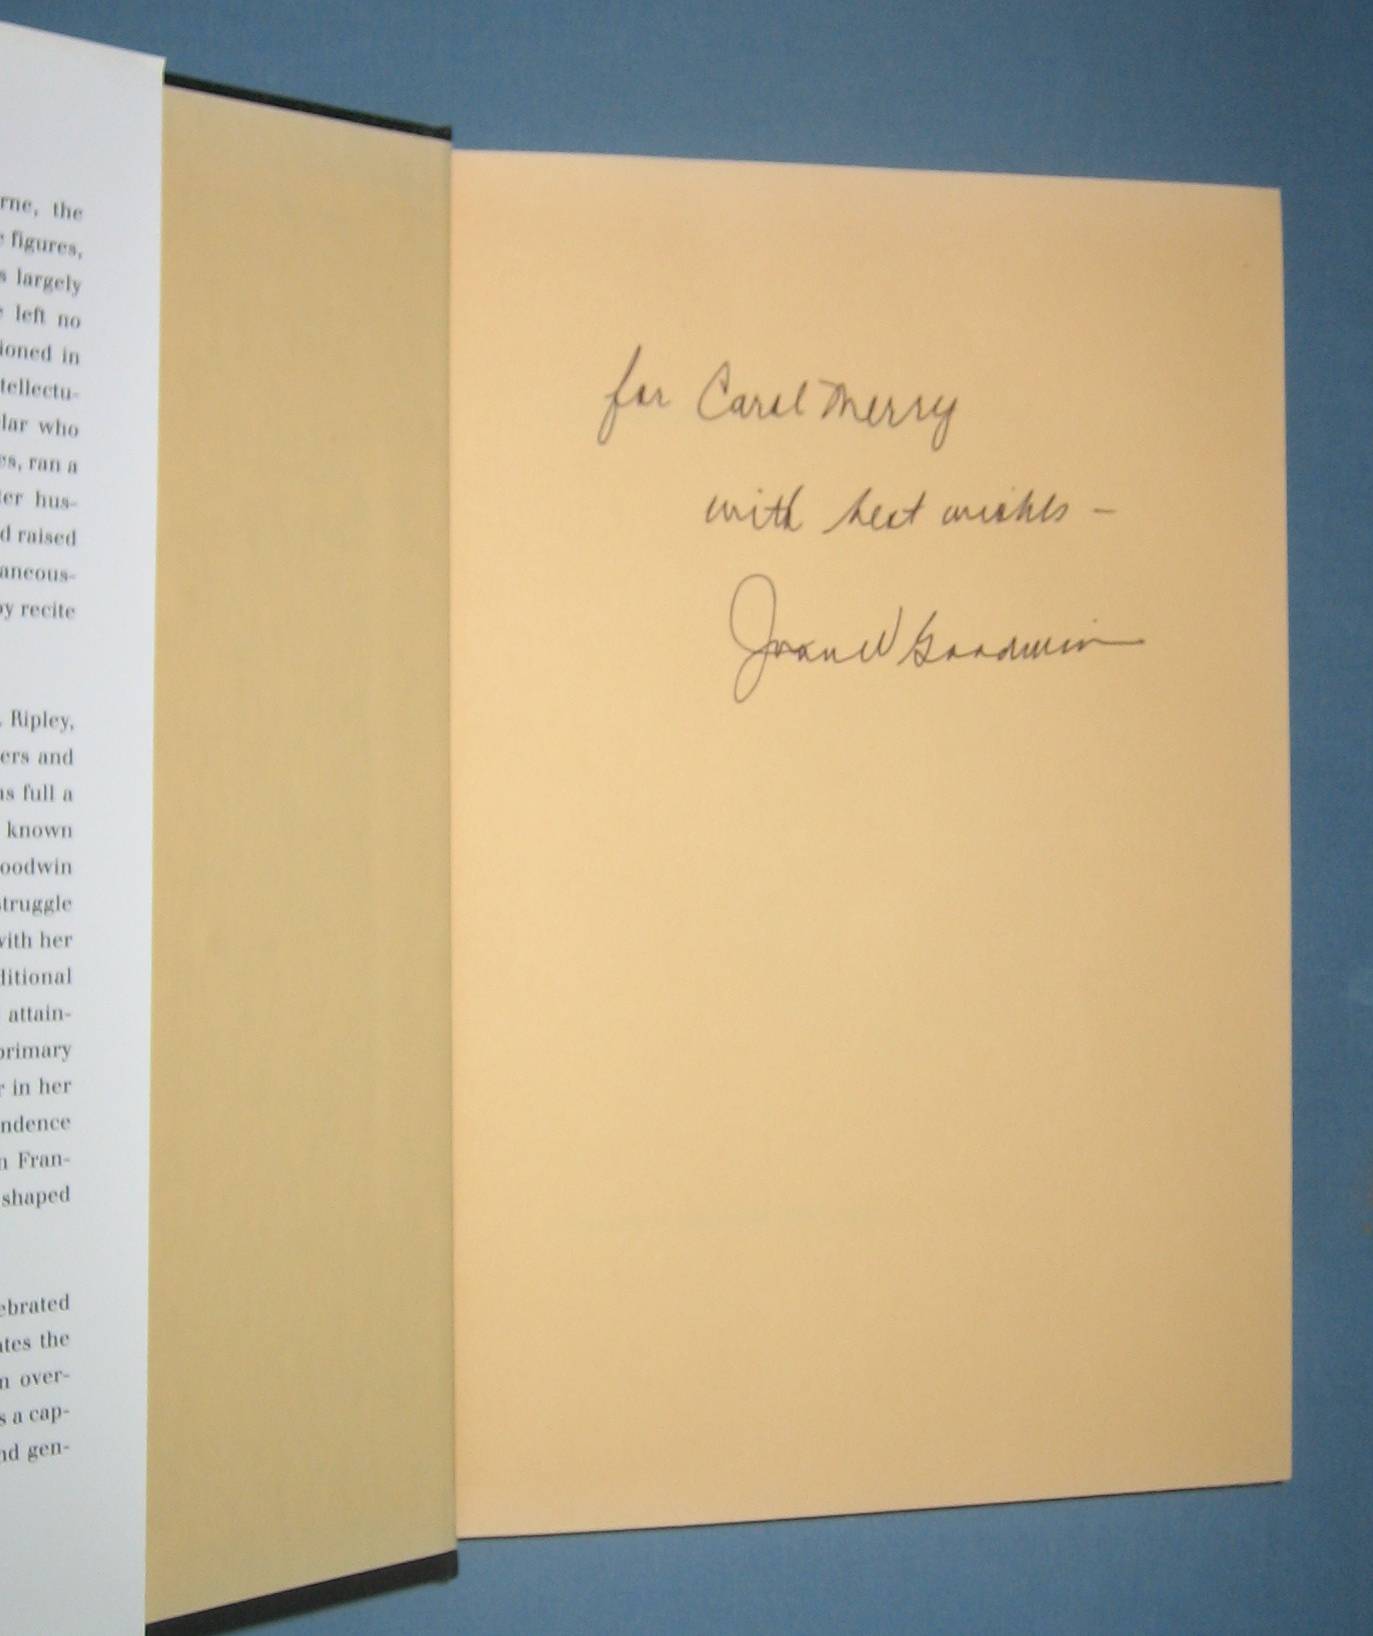 rne, the
figures,
s largely
left no
ioned in
tellectu-
lar who
es, ran a
ter hus-
d raised
aneous-
oy recite
. Ripley,
ers and
as full a
known
oodwin
struggle
with her
ditional
attain-
primary
r in her
ndence
n Fran-
shaped
ebrated
ates the
n over-
s a cap-
nd gen-
for Carol Merry
with best wishes –
Joan W Goodwin